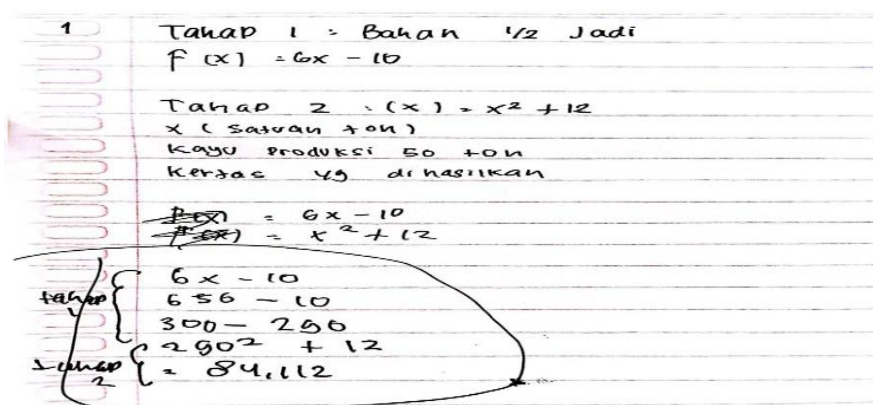 1 Tahap 1 : Bahan 1/2 Jadi
f (x) = 6x - 10
Tahap 2 : (x) = x² + 12
x (satuan ton)
Kayu produksi 50 ton
Kertas yg dihasilkan
f(x) = 6x - 10
f(x) = x² + 12
6x - 10
tahap 1 { 650 - 10
300 - 290
290² + 12
tahap 2 { = 84.112